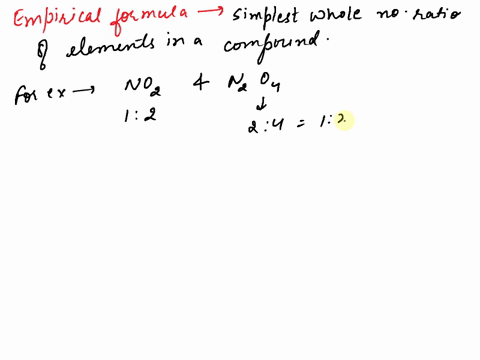 Empirical formula → simplest whole no. ratio
of elements in a compound.
For ex → NO2 & N2O4
↓
1:2 2:4 = 1:2